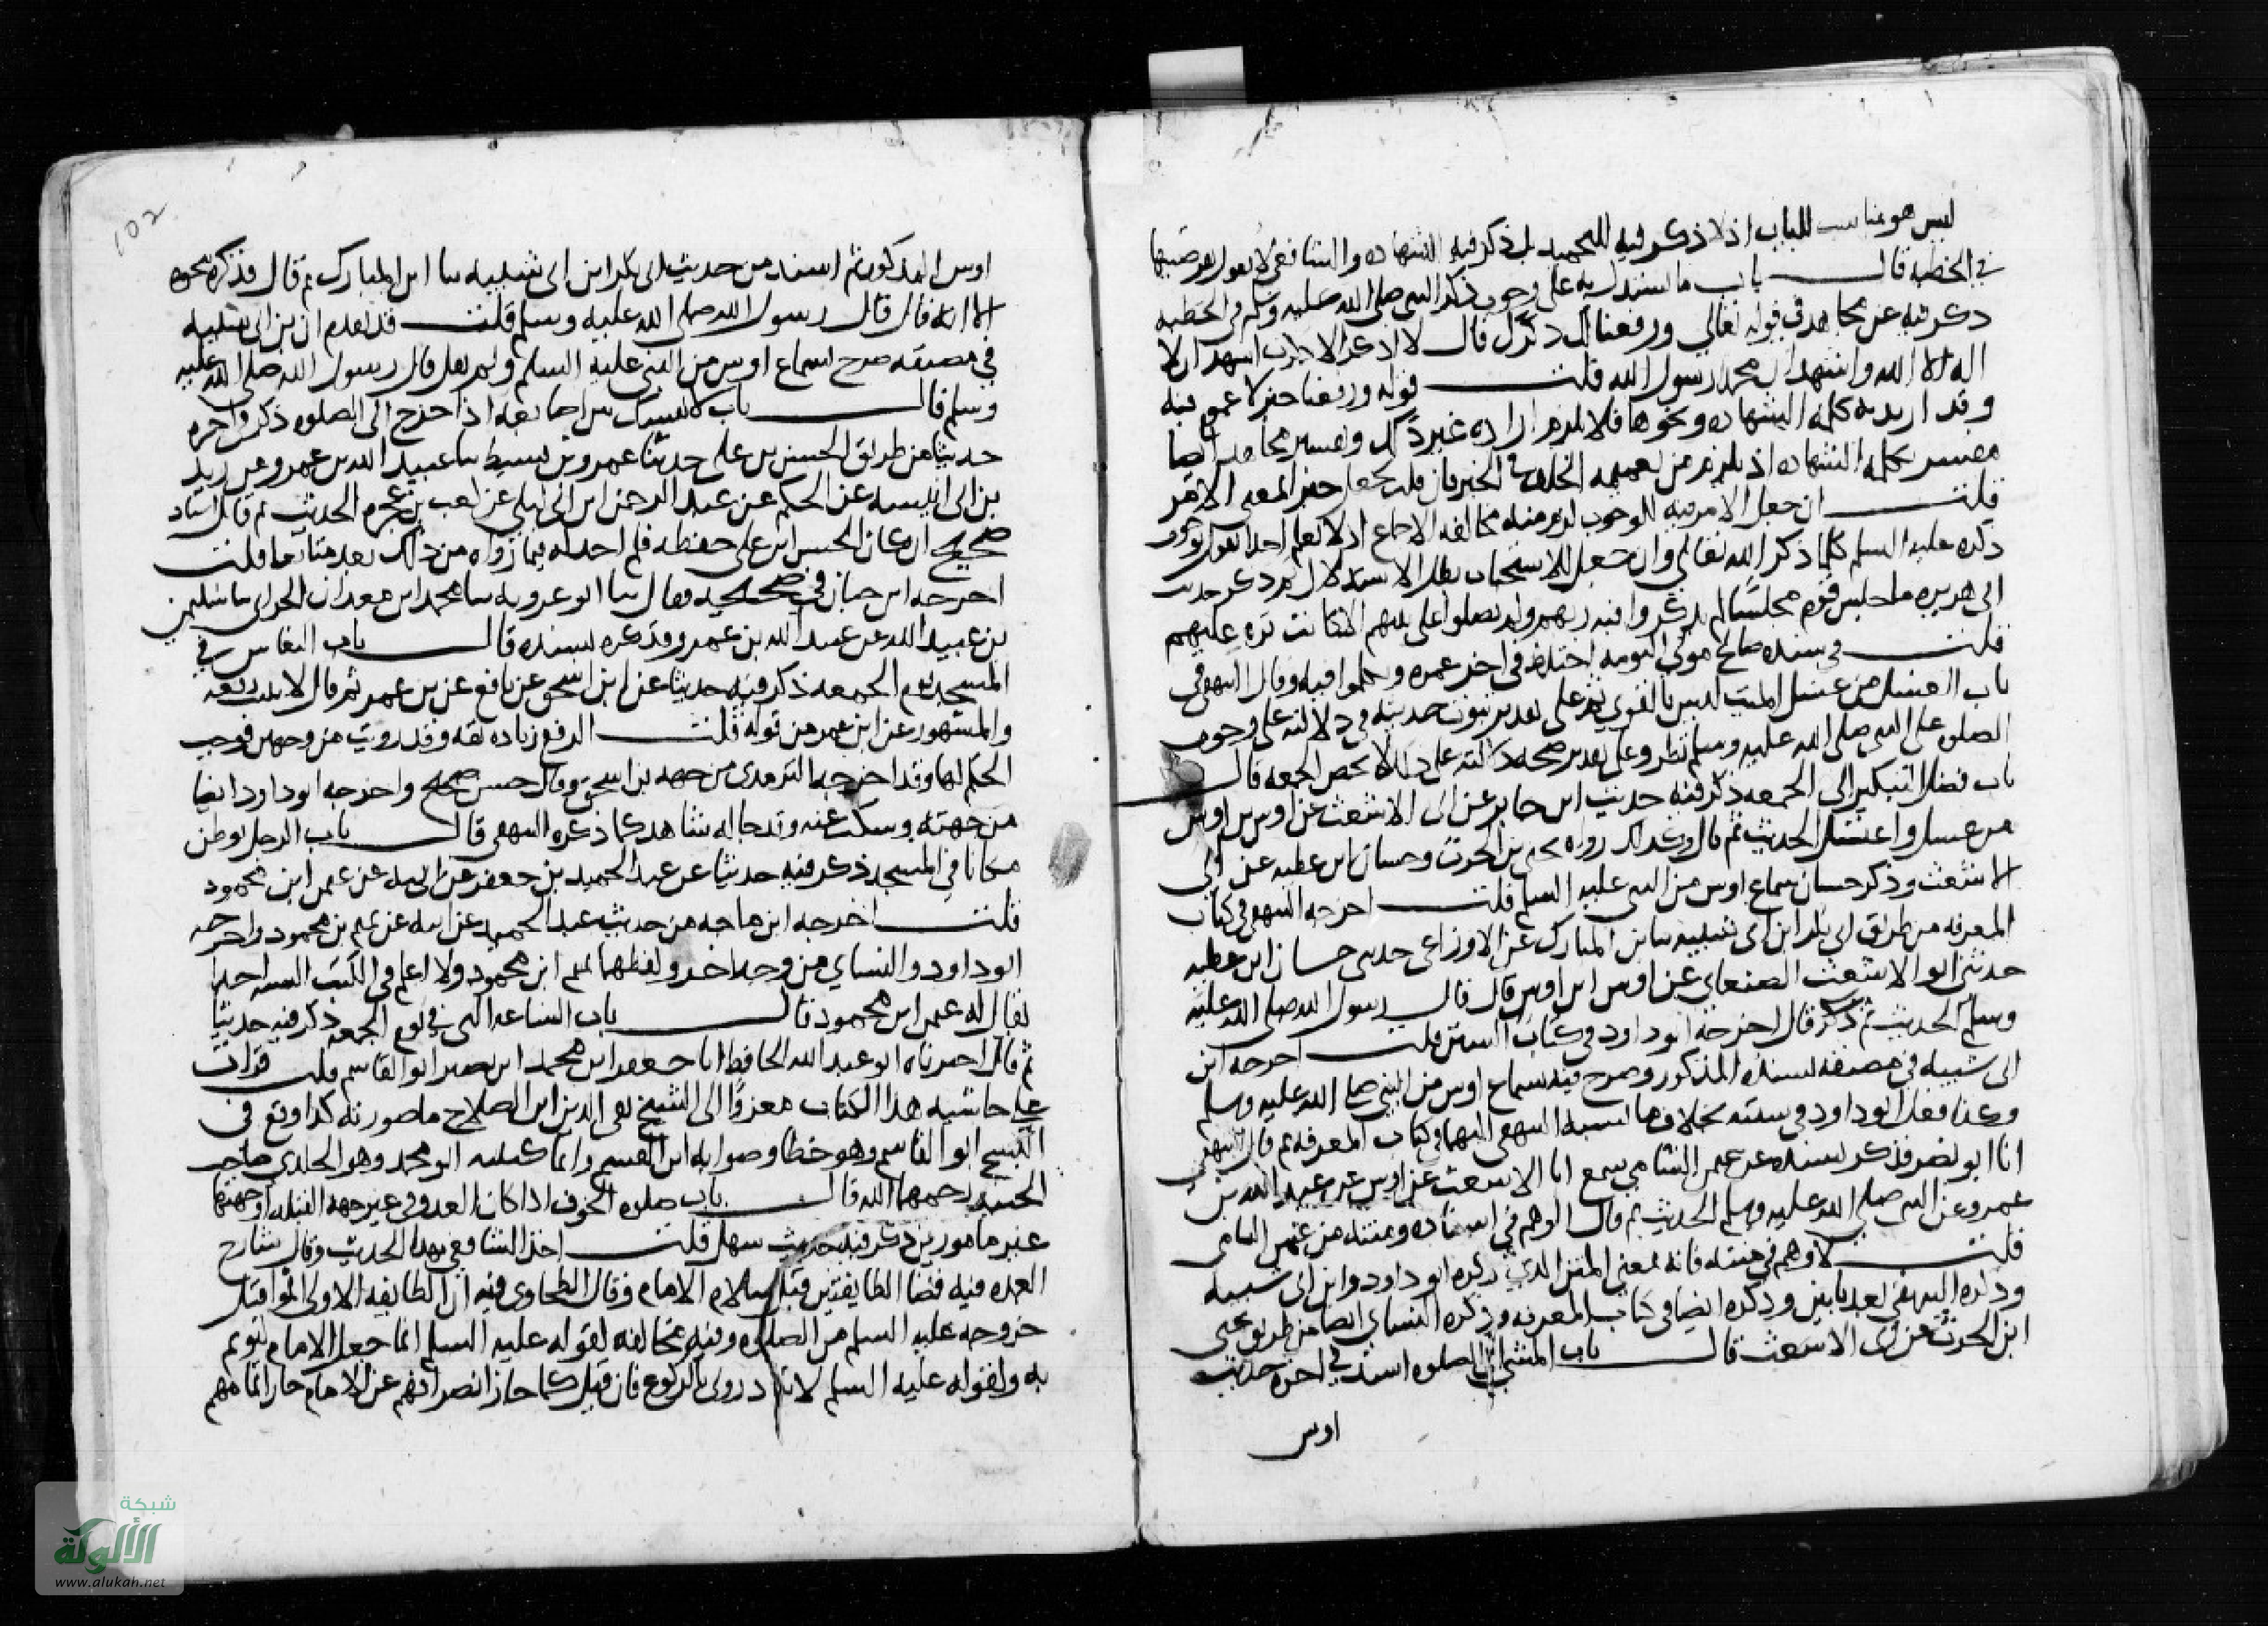 ليس هو بمناسب للباب اذ لا ذكر فيه للتحميد بل ذكر فيه الشهاده والشافعي لا يقول بفرضيتها
في الخطبه قال باب ما يستدل به على وجوب ذكر النبي صلى الله عليه وسلم في الخطبه
ذكر فيه عن مجاهد في قوله تعالى ورفعنا لك ذكرك قال لا اذكر الا ذكرت اشهد ان لا
اله الا الله واشهد ان محمدا رسول الله قلت قوله ورفعنا خبر لا عموم فيه
وقد اريد به كلمه الشهاده ونحوها فلا يلزم اراده غير ذلك وتفسير مجاهد ايضا
مفسر بكلمه الشهاده اذ يلزم من تعميمه الخلف في الخبر فان قلت نجعل خبرا بمعنى الامر
قلت ان جعل الامر فيه للوجوب لزم منه مخالفه الاجماع اذ لا نعلم احدا يقول بوجوب
ذكره عليه السلم كلما ذكر الله تعالى وان جعل للاستحباب بطل الاستدلال ثم ذكر حديث
ابي هريره ما جلس قوم مجلسا لم يذكروا فيه ربهم ولم يصلوا على نبيهم الا كانت تره عليهم
قلت في سنده صالح مولى التومه اختلط في اخر عمره وتكلموا فيه وقال البيهقي في
باب الغسل من غسل الميت ليس بالقوي ثم على تقدير ثبوت حديثه في دلالته على وجوب
الصلوه على النبي صلى الله عليه وسلم نظر وعلى تقدير صحه دلالته على ذلك لا يخص الجمعه قال
باب فضل التبكير الى الجمعه ذكر فيه حديث ابن جابر عن ابي الاشعث عن اوس بن اوس
من غسل واغتسل الحديث ثم قال وكذلك رواه يحيى بن الحرث وحسان ابن عطيه عن ابي
الاشعث وذكر حسان سماع اوس من النبي عليه السلم قلت اخرجه البيهقي في كتاب
المعرفه من طريق ابي بكر ابن ابي شيبه سا ابن المبارك عن الاوزاعي حدثني حسان ابن عطيه
حدثني ابو الاشعث الصنعاني عن اوس ابن اوس قال قال رسول الله صلى الله عليه
وسلم الحديث ثم ذكر قال اخرجه ابو داود في كتاب السنن قلت اخرجه ابن
ابي شيبه في مصنفه بسنده المذكور وصرح فيه بسماع اوس من النبي صلى الله عليه وسلم
وكذا فعل ابو داود في سننه بخلاف ما نسبه البيهقي اليهما في كتاب المعرفه ثم قال البيهقي
انا ابو نصر فذكر بسنده عن عثمن الشامي سمع ابا الاشعث عن اوس عن عبد الله بن
عمرو عن النبي صلى الله عليه وسلم الحديث ثم قال الوهم في اسناده ومتنه من عثمن الشامي
قلت لا وهم في متنه فانه بمعنى المتن الذي ذكره ابو داود وابن ابي شيبه
وذكره البيهقي بعد بابين وذكره ايضا في كتاب المعرفه وذكره النسائي ايضا من طريق يحيى
ابن الحرث عن ابي الاشعث قال باب المشي الى الصلوه اسند في اخره حديث
اوس
اوس المذكور ثم اسند من حديث ابي بكر ابن ابي شيبه سا ابن المبارك ثم قال فذكره بنحوه
الا انه قال قال رسول الله صلى الله عليه وسلم قلت قد تقدم ان بن ابي شيبه
في مصنفه صرح بسماع اوس من النبي عليه السلم ولم يقل قال رسول الله صلى الله عليه
وسلم قال باب لا يشبك بين اصابعه اذا خرج الى الصلوه ذكر في اخره
حديثا من طريق الحسن بن علي حدثنا عمرو بن قسيط سا عبيد الله بن عمرو عن زيد
بن ابي انيسه عن الحكم عن عبد الرحمن ابن ابي ليلى عن كعب بن عجره الحديث ثم قال اسناد
صحيح ان كان الحسن ابن علي حفظه فلم اجد له فيما رواه من ذلك بعد متابعا قلت
اخرجه ابن حبان في صحيحه فقال سا ابو عروبه سا محمد ابن معدان الحراني سا سليمن
بن عبيد الله عن عبيد الله بن عمرو فذكره بسنده قال باب النعاس في
المسجد يوم الجمعه ذكر فيه حديثا عن ابن اسحق عن نافع عن بن عمر ثم قال لا يثبت رفعه
والمشهور عن ابن عمر من قوله قلت الرفع زياده ثقه وقد رويت من وجهين فوجب
الحكم لها وقد اخرجه الترمذي من جهه بن اسحق وقال حسن صحيح واخرجه ابو داود ايضا
من جهته وسكت عنه وقد جا له شاهد كما ذكره البيهقي قال باب الرجل يوطن
مكانا في المسجد ذكر فيه حديثا عن عبد الحميد بن جعفر عن ابيه عن عمر ابن محمود
قلت اخرجه ابن ماجه من حديث عبد الحميد عن ابيه عن تميم بن محمود واخرجه
ابو داود والنسائي من وجه اخر ولفظهما تميم ابن محمود ولا اعلم في الكتب السته احدا
يقال له عمر ابن محمود قال باب الساعه التي في يوم الجمعه ذكر فيه حديثا
ثم قال اخبرناه ابو عبد الله الحافظ انا جعفر ابن محمد ابن نصير ابو القاسم قلت قرات
على حاشيه هذا الكتاب معزوا الى الشيخ تقي الدين ابن الصلاح ما صورته كذا وقع في
النسخ ابو القاسم وهو خطا وصوابه ابن القسم وانما كنيته ابو محمد وهو الخلدي صاحب
الجنيد رحمهما الله قال باب صلوه الخوف اذا كان العدو في غير جهه القبله او جهتها
غير مامونين ذكر فيه حديث سهل قلت اخذ الشافعي بهذا الحديث وقال شارح
العمده فيه قضا الطايفتين قبل سلام الامام وقال الطحاوي فيه ان الطايفه الاولى اتموا قبل
خروجه عليه السلم من الصلوه وفيه مخالفه لقوله عليه السلم انما جعل الامام ليوتم
به ولقوله عليه السلم لا تبادروني بالركوع فان قيل كما جاز انصرافهم عن الامام جاز اتمامهم
102
شبكة
الألوكة
www.alukah.net